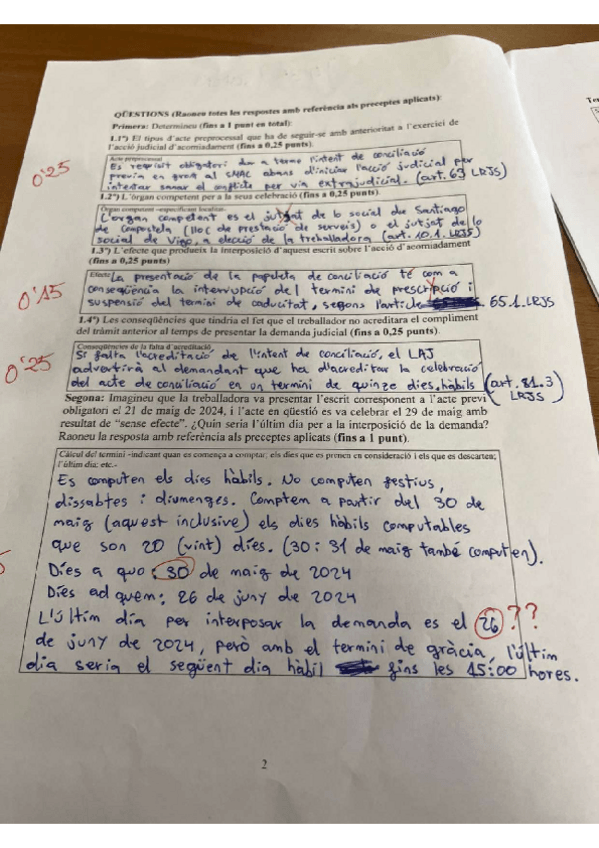 QÜESTIONS (Raoneu totes les respostes amb referència als preceptes aplicats):
Primera: Determineu (fins a 1 punt en total):
1.1ª) El tipus d'acte preprocessal que ha de seguir-se amb anterioritat a l'exercici de
l'acció judicial d'acomiadament (fins a 0,25 punts).
0'25
Acte preprocessal
Es requisit obligatori dur a terme l'intent de conciliació
previa en grau al SMAC abans d'iniciar l'acció judicial per
intentar sanar el conflicte per via extrajudicial. (art. 63 LRJS)
1.2ª) L'òrgan competent per a la seua celebració (fins a 0,25 punts).
Òrgan competent -especificant localitat-
L'organ competent es el jutjat de lo social de Santiago
de Compostela (lloc de prestació de serveis) o el jutjat de lo
social de Vigo, a elecció de la treballadora (art. 10.1. LRJS)
1.3ª) L'efecte que produeix la interposició d'aquest escrit sobre l'acció d'acomiadament
(fins a 0,25 punts)
0'15
Efecte
La presentació de la papeleta de conciliació té com a
conseqüència la interrupció del termini de prescripció i
suspensió del termini de caducitat, segons l'article 65.1. LRJS
1.4ª) Les conseqüències que tindria el fet que el treballador no acreditara el compliment
del tràmit anterior al temps de presentar la demanda judicial (fins a 0,25 punts).
0'25
Conseqüències de la falta d'acreditació
Si falta l'acreditació de l'intent de conciliació, el LAJ
advertirà al demandant que ha d'acreditar la celebració
del acte de conciliació en un termini de quinze dies. hàbils (art. 81.3
LRJS)
Segona: Imagineu que la treballadora va presentar l'escrit corresponent a l'acte previ
obligatori el 21 de maig de 2024, i l'acte en qüestió es va celebrar el 29 de maig amb
resultat de "sense efecte". ¿Quin seria l'últim dia per a la interposició de la demanda?
Raoneu la resposta amb referència als preceptes aplicats (fins a 1 punt).
Càlcul del termini -indicant quan es comença a comptar; els dies que es prenen en consideració i els que es descarten;
l'últim dia; etc.-
Es computen els dies hàbils. No computen festius,
dissabtes i diumenges. Comptem a partir del 30 de
maig (aquest inclusive) els dies hàbils computables
que son 20 (vint) dies. (30 i 31 de maig també computen).
Dies a quo: 30 de maig de 2024
Dies ad quem: 26 de juny de 2024
L'últim dia per interposar la demanda es el 26 ??
de juny de 2024, però amb el termini de gràcia, l'últim
dia seria el següent dia hàbil fins les 15:00 hores.
2